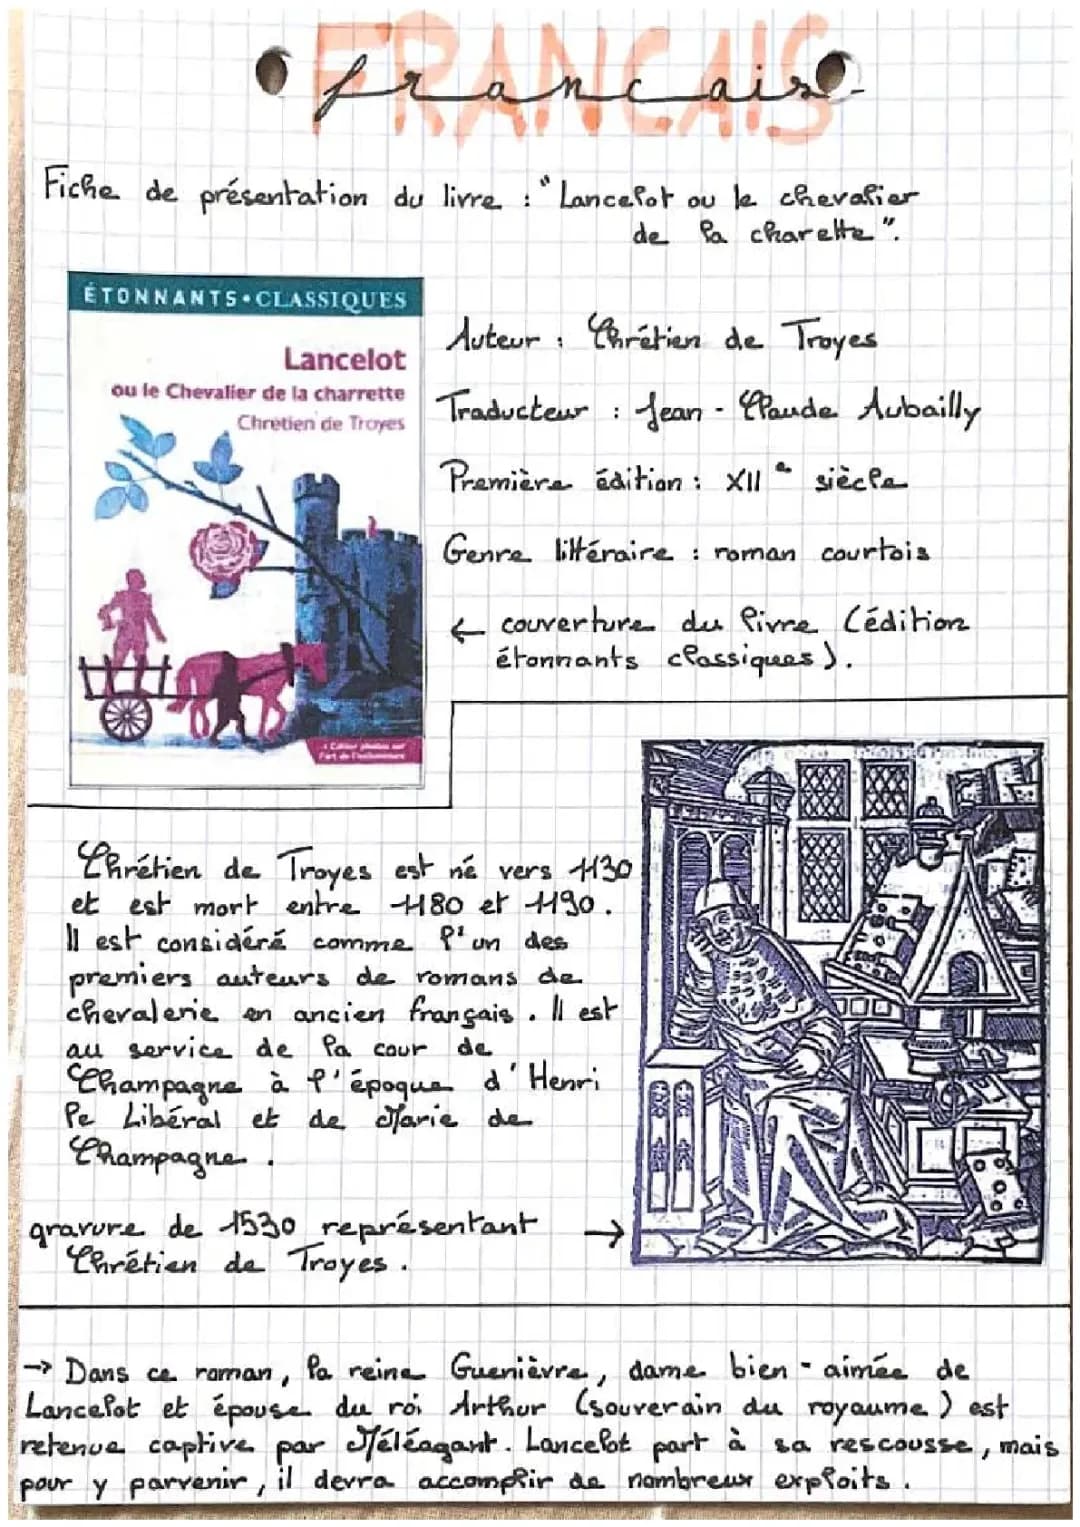 FRANCAIS
français
Fiche de présentation du livre : "Lancelot ou le chevalier
de la charette".
ÉTONNANTS•CLASSIQUES
Lancelot
ou le Chevalier de la charrette
Chrétien de Troyes
Auteur : Chrétien de Troyes
Traducteur : Jean - Claude Aubailly
Première édition : XII e siècle
Genre littéraire : roman courtois
← couverture du livre (édition
étonnants classiques).
• Cahier photos sur
l'art de l'enluminure
Chrétien de Troyes est né vers 1130
et est mort entre 1180 et 1190.
Il est considéré comme l'un des
premiers auteurs de romans de
chevalerie en ancien français. Il est
au service de la cour de
Champagne à l'époque d'Henri
le Libéral et de Marie de
Champagne.
gravure de 1530 représentant →
Chrétien de Troyes.
→ Dans ce roman, la reine Guenièvre, dame bien - aimée de
Lancelot et épouse du roi Arthur (souverain du royaume) est
retenue captive par Méléagant. Lancelot part à sa rescousse, mais
pour y parvenir, il devra accomplir de nombreux exploits.